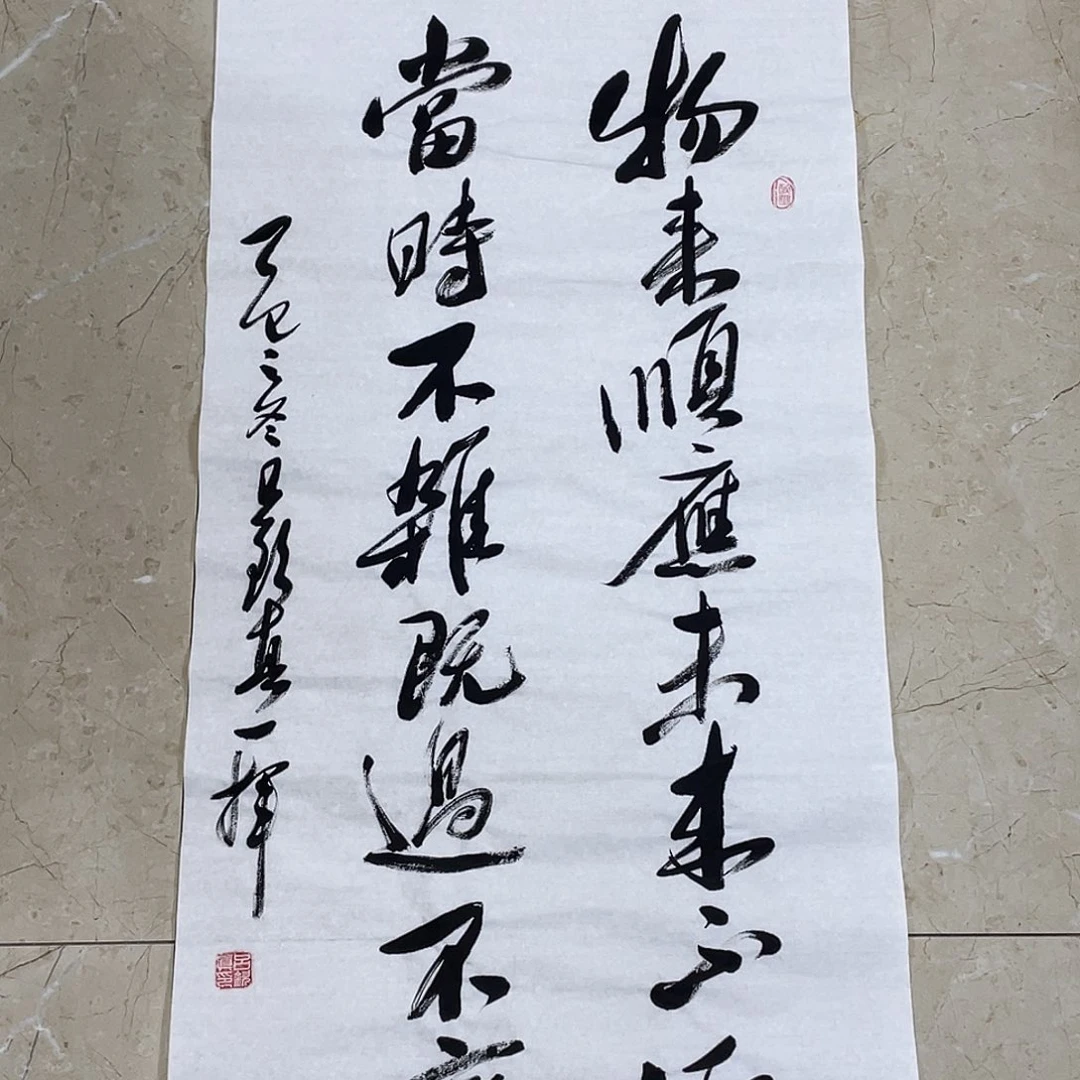 物来順應未来不
當時不雜既過不
乙巳之冬吕真一揮